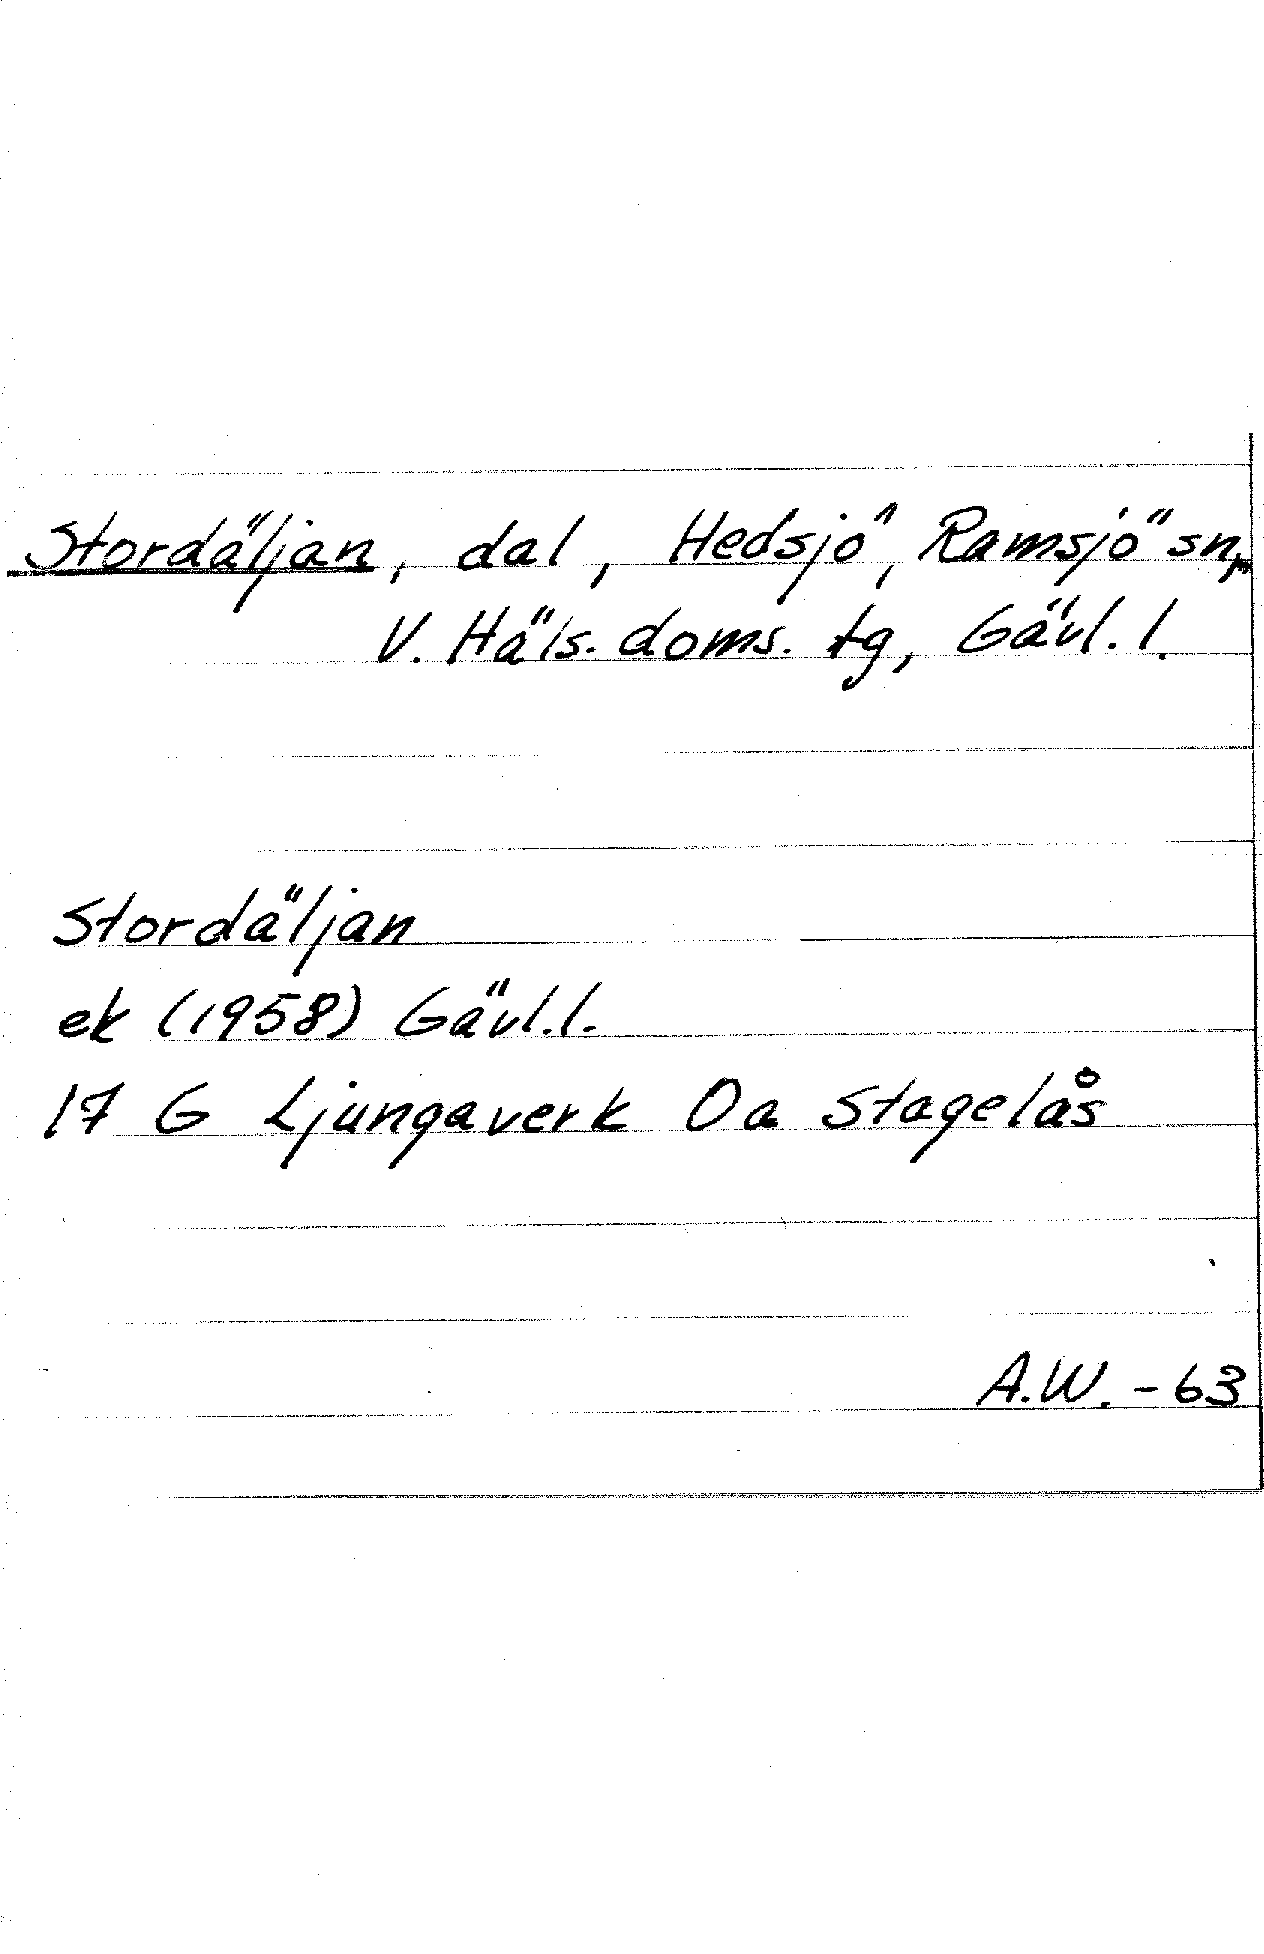 Stordäljan, dal, Hedsjö, Ramsjö sn,
V. Häls. doms. tg, Gävl. l.
Stordäljan
ek (1958) Gävl. l.
17 G Ljungaverk 0a Stagelås
A.W. - 63